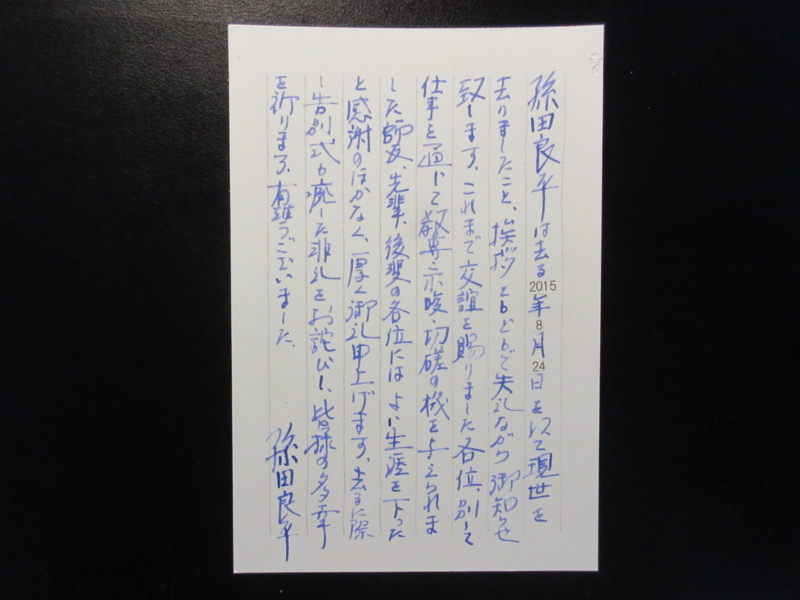 孫田良平は去る2015年8月24日を以て現世を
去りましたこと、挨拶ともどもで失礼ながら御知らせ
致します。これまで交誼を賜りました各位、別して
仕事を通じて教導・示唆・切磋の機を与えられま
した師友、先輩、後輩の各位にはよい生涯を下った
と感謝のほかなく、厚く御礼申上げます。去るに際
し告別式も廃した非礼をお詫びし、皆様の多幸
を祈ります。有難うございました。
孫田良平